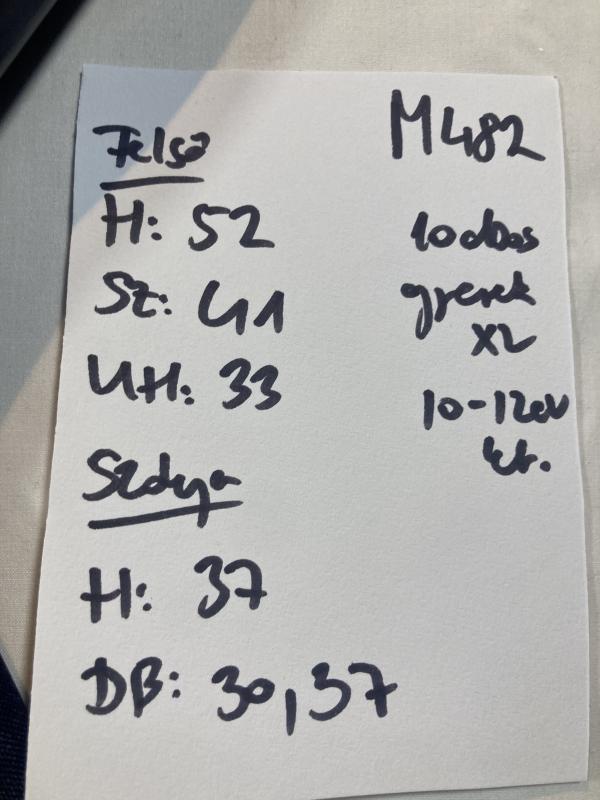 Felső
H: 52
Sz: 41
UH: 33
Szoknya
H: 37
DB: 30,37
M482
10 dbos
gyerek
x2
10-12 év
kt.